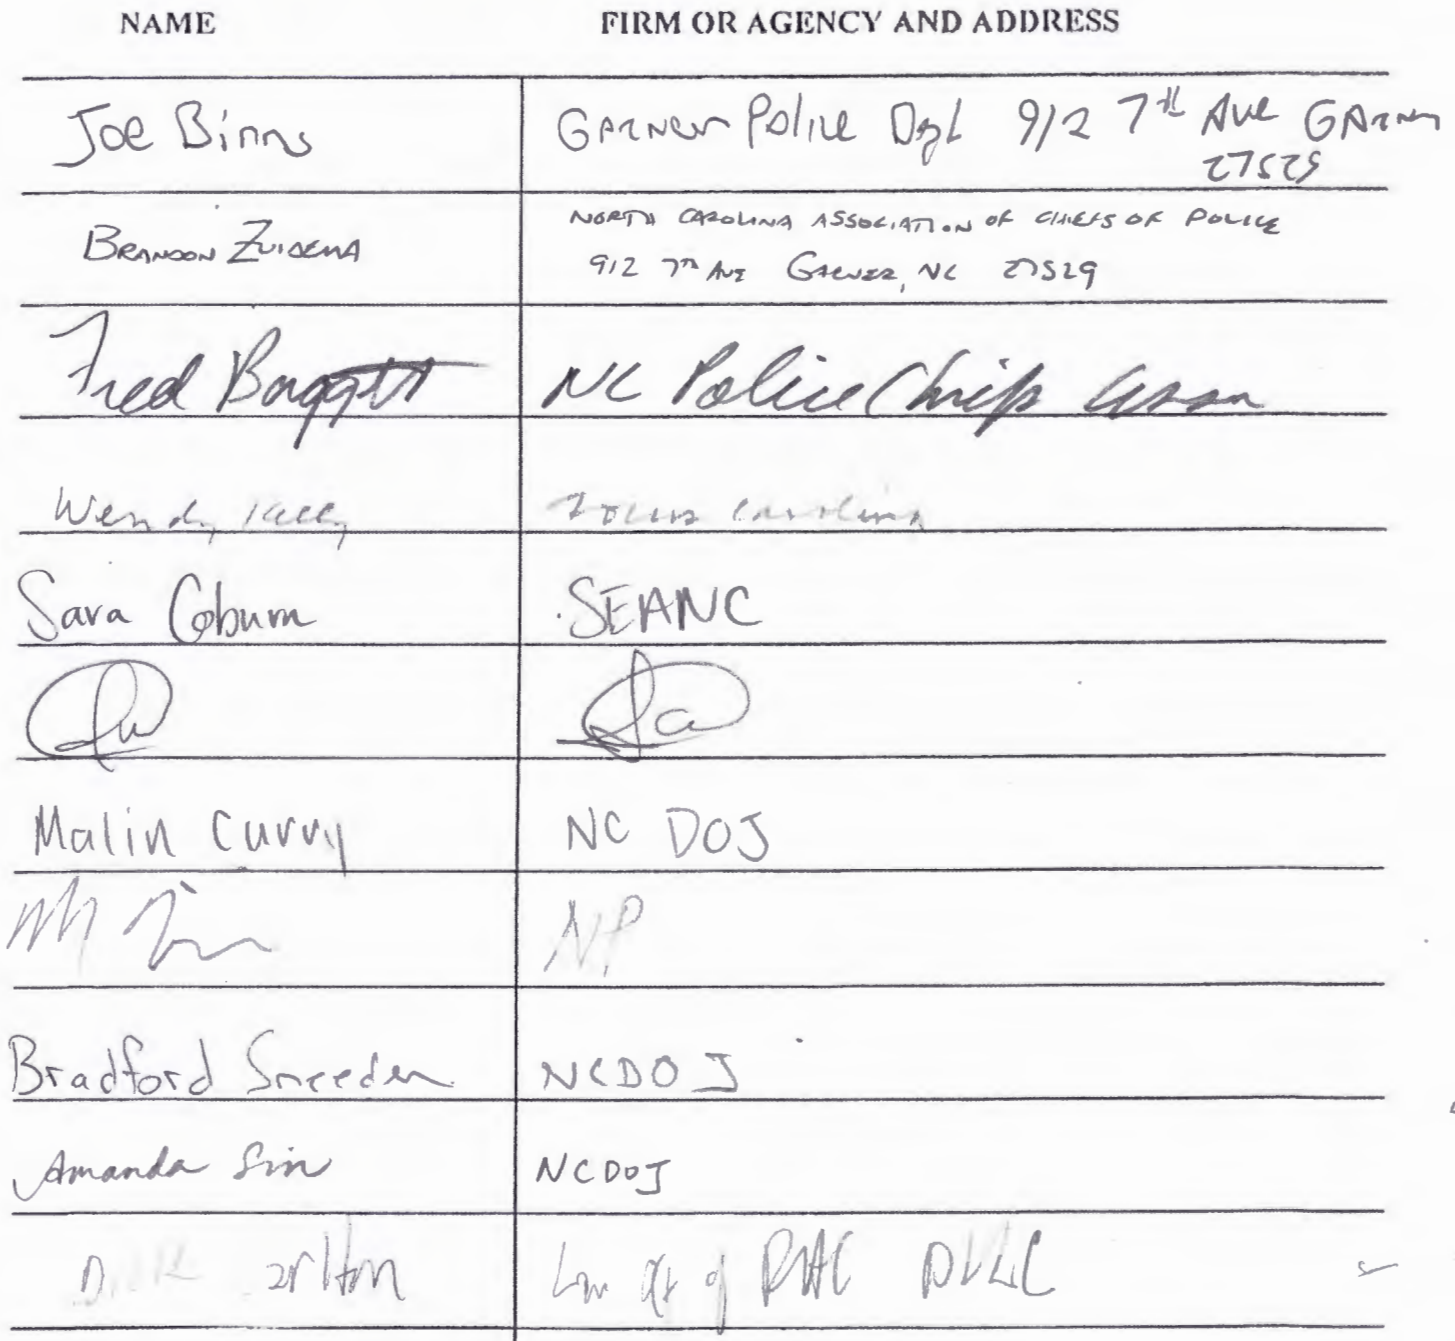 NAME FIRM OR AGENCY AND ADDRESS
Joe Binns Garner Police Dept 912 7th Ave Garner
27529
BRANDON ZUIDEMA NORTH CAROLINA ASSOCIATION OF CHIEFS OF POLICE
912 7TH AVE GARNER, NC 27529
Fred Baggett NC Police Chiefs Assn
Wendy Kelly Focus Carolina
Sara Coburn SEANC
Malin Curry NC DOJ
NP
Bradford Sneeden NCDOJ
Amanda NCDOJ
of